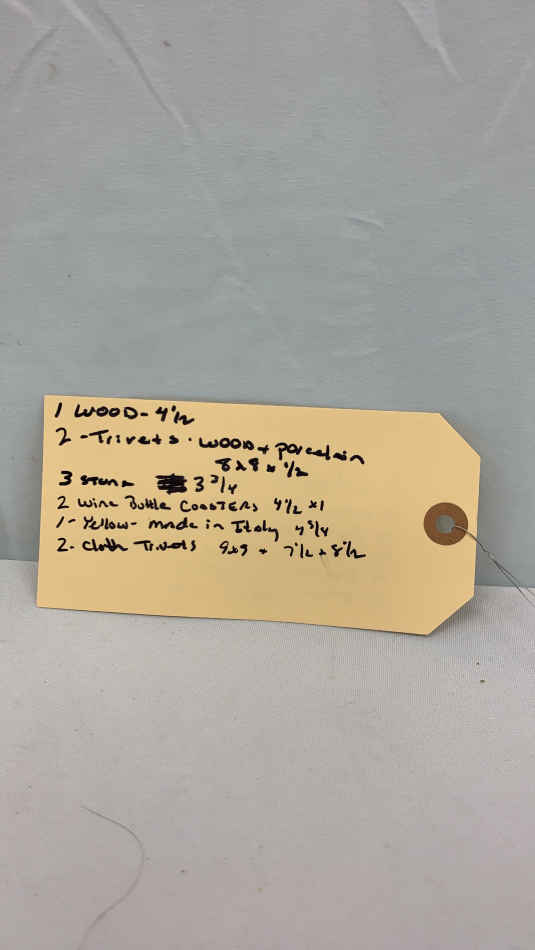 1 WOOD - 4 1/2
2 - Trivets. WOOD + porcelain
8x8 x 1/2
3 3 3/4
2 Wine Bottle COASTERS 4 1/2 x1
1 - Yellow - made in Italy 4 3/4
2. Cloth Trivets 9x9 + 7 1/2 x 8 1/2